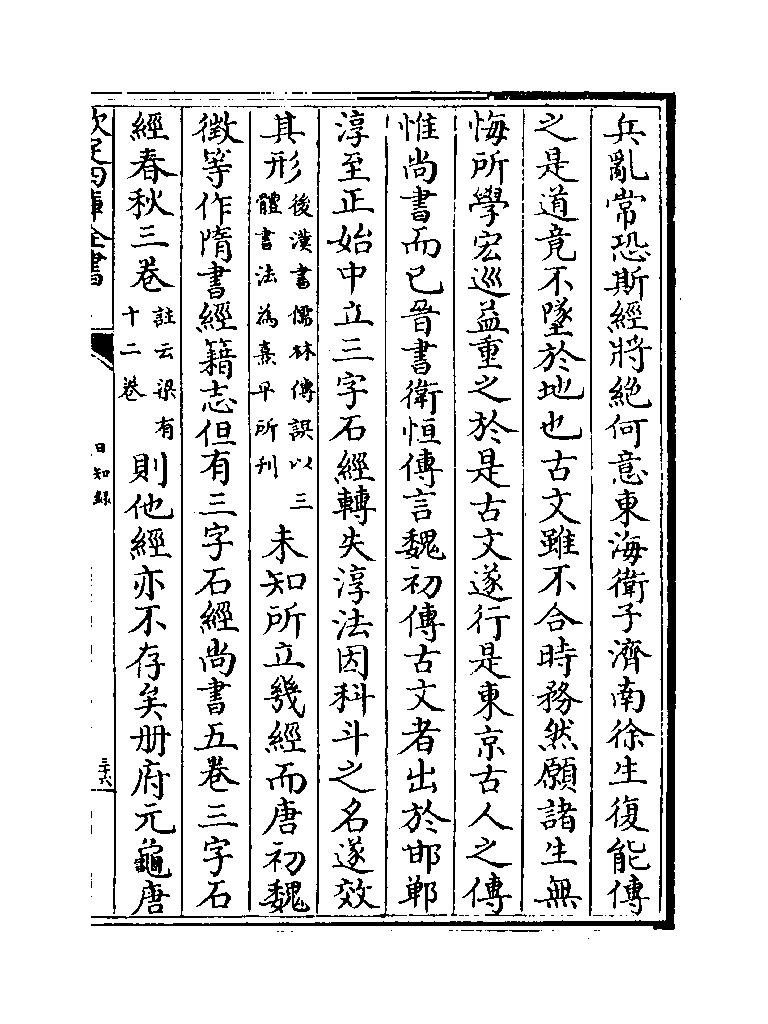 兵亂常恐斯經將絶何意東海衛子濟南徐生復能傳
之是道竟不墜於地也古文雖不合時務然願諸生無
悔所學宏巡益重之於是古文遂行是東京古人之傳
惟尚書而已晉書衛恒傳言魏初傳古文者出於邯鄲
淳至正始中立三字石經轉失淳法因科斗之名遂效
其形後漢書儒林傳誤以三體書法為熹平所刋未知所立幾經而唐初魏
徴等作隋書經籍志但有三字石經尚書五卷三字石
經春秋三卷註云梁有十二卷則他經亦不存矣册府元龜唐
欽定四庫全書
日知錄
三十六